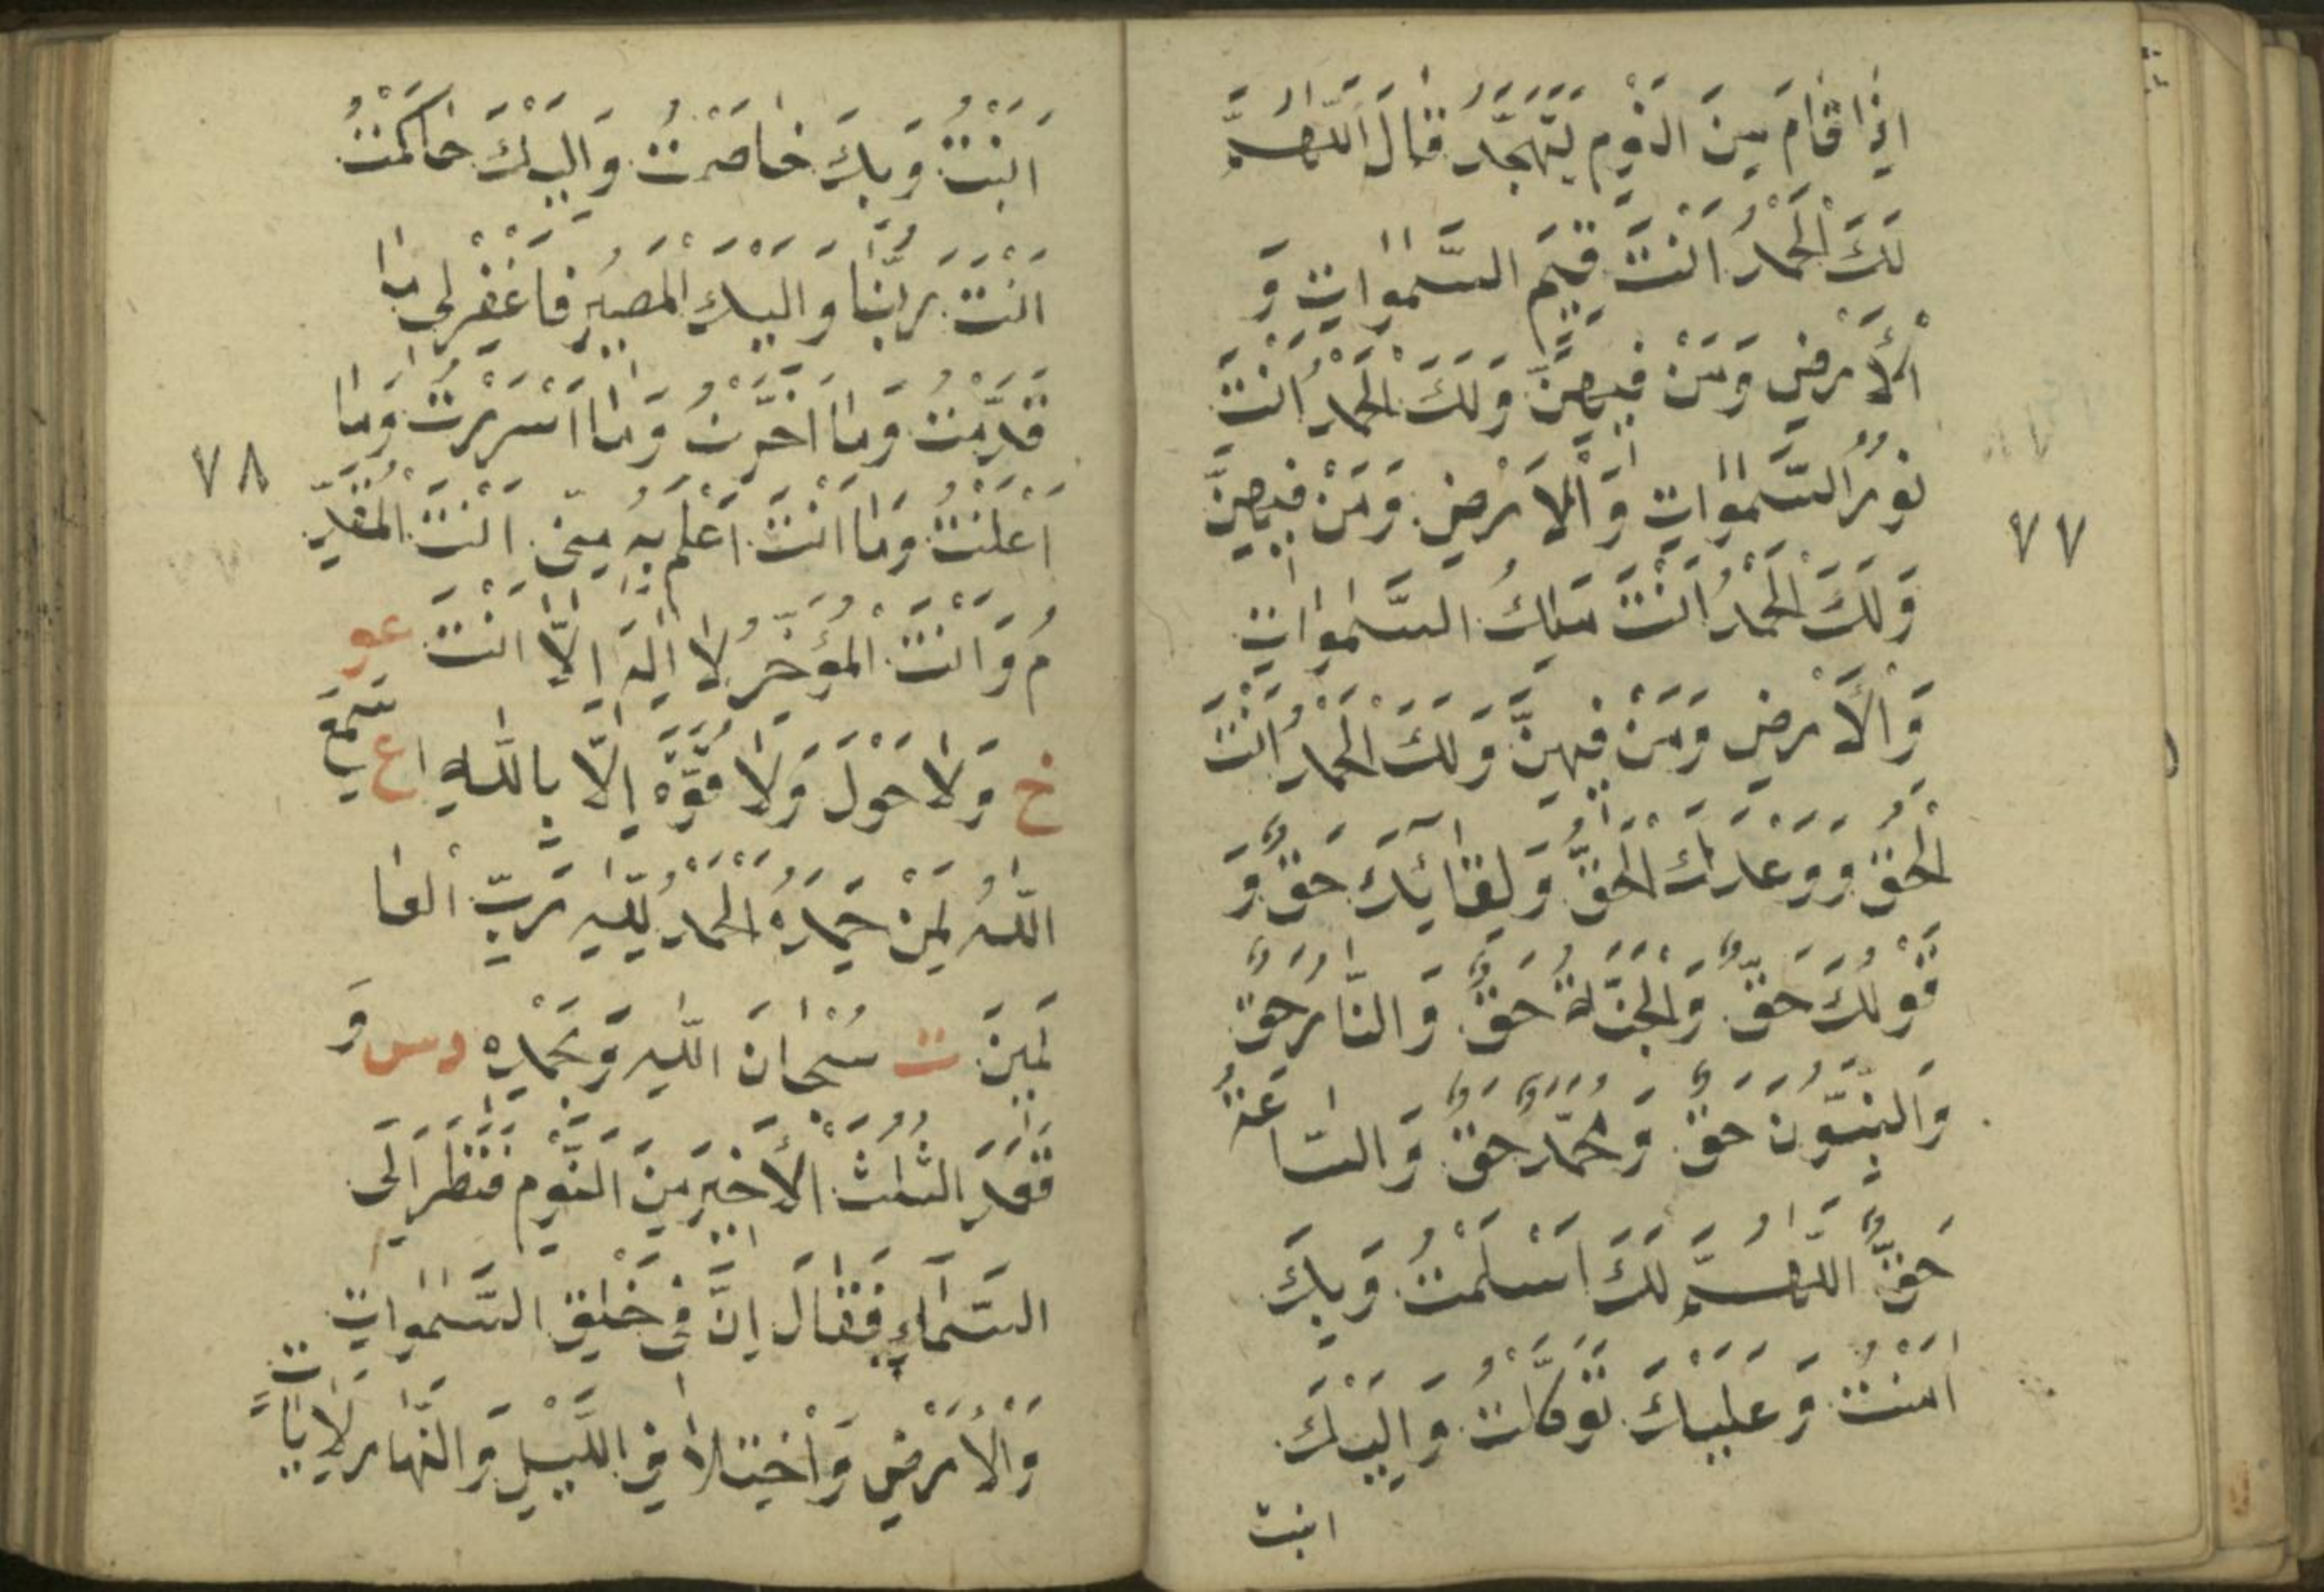 اِذَا قَامَ مِنَ النَّوْمِ لِتَهَجُّدِ قَالَ اَللّٰهُمَّ
لَكَ الْحَمْدُ اَنْتَ قَيِّمُ السَّمٰوٰاتِ وَ
الْأَرْضِ وَمَنْ فِيهِنَّ وَلَكَ الْحَمْدُ اَنْتَ
نُورُ السَّمٰوٰاتِ وَالْأَرْضِ وَمَنْ فِيهِنَّ
وَلَكَ الْحَمْدُ اَنْتَ مَلِكُ السَّمٰوٰاتِ
وَالْأَرْضِ وَمَنْ فِيهِنَّ وَلَكَ الْحَمْدُ اَنْتَ
الْحَقُّ وَوَعْدَكَ الْحَقُّ وَلِقٰائِكَ حَقٌّ وَ
قَوْلُكَ حَقٌّ وَالْجَنَّةُ حَقٌّ وَالنَّارُ حَقٌّ
وَالنَّبِيُّونَ حَقٌّ وَمُحَمَّدٌ حَقٌّ وَالسَّاعَةُ
حَقٌّ اَللّٰهُمَّ لَكَ اَسْلَمْتُ وَبِكَ
اٰمَنْتُ وَعَلَيْكَ تَوَكَّلْتُ وَاِلَيْكَ
انبت
٧٧
اَنَبْتُ وَبِكَ خَاصَمْتُ وَاِلَيْكَ حَاكَمْتُ
اَنْتَ رَبُّنَا وَاِلَيْكَ الْمَصِيرُ فَاغْفِرْلِي مَا
قَدَّمْتُ وَمَا اَخَّرْتُ وَمَا اَسْرَرْتُ وَمَا
اَعْلَنْتُ وَمَا اَنْتَ اَعْلَمُ بِهِ مِنِّي اَنْتَ الْمُقَدِّ
مُ وَاَنْتَ الْمُؤَخِّرُ لَا اِلٰهَ اِلَّا اَنْتَ عو
خ وَلَا حَوْلَ وَلَا قُوَّةَ اِلَّا بِاللّٰهِ ع سَمِعَ
اللّٰهُ لِمَنْ حَمِدَهُ الْحَمْدُ لِلّٰهِ رَبِّ الْعَا
لَمِينَ ت سُبْحَانَ اللّٰهِ وَبِحَمْدِهِ دس وَ
قَعَدَ الثُّلُثَ الْأَخِيرَ مِنَ النَّوْمِ فَنَظَرَ اِلَى
السَّمَاءِ فَقَالَ اِنَّ فِي خَلْقِ السَّمٰوٰاتِ
وَالْأَرْضِ وَاخْتِلَافِ اللَّيْلِ وَالنَّهَارِ لَاٰيَاتٍ
٧٨